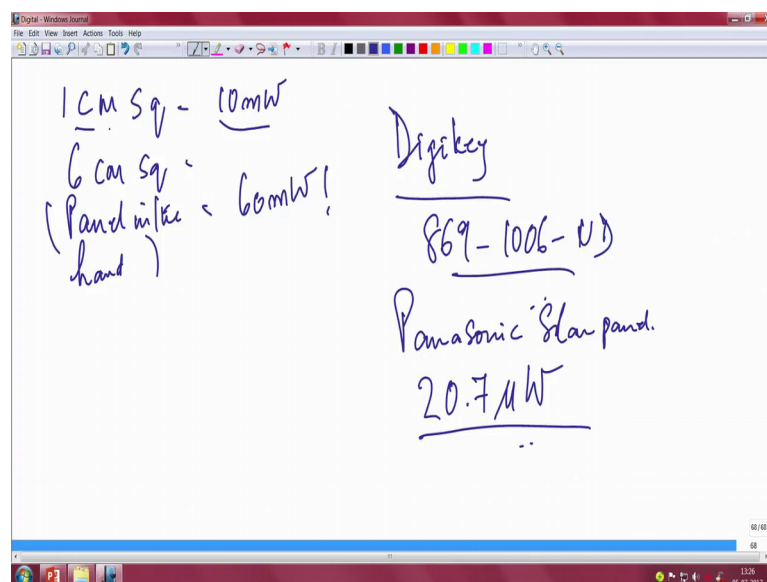 Digital - Windows Journal
File Edit View Insert Actions Tools Help
1 CM Sq - 10mW
6 cm Sq -
(Panel in the = 60mW!
hand)
Digikey
869-1006-ND
Panasonic Solar panel.
20.7 μW
68/68
68
13:26